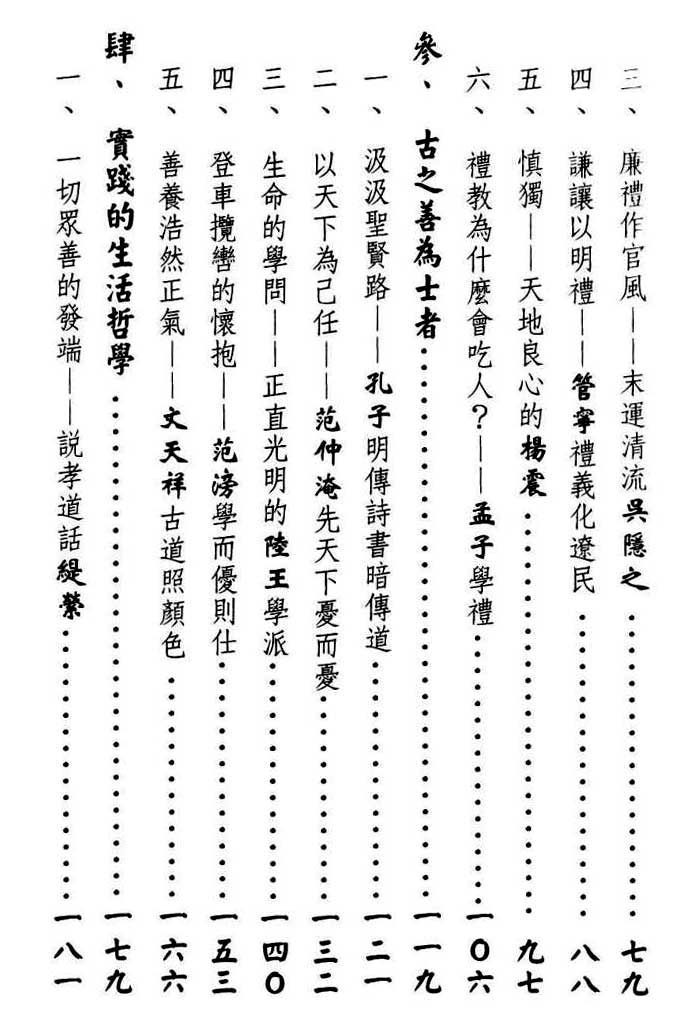 三、廉禮作官風——末運清流吳隱之……七九
四、謙讓以明禮——管寧禮義化遼民……八八
五、慎獨——天地良心的楊震……九七
六、禮教為什麼會吃人？——孟子學禮……一〇六
參、古之善為士者……一一九
一、汲汲聖賢路——孔子明傳詩書暗傳道……一二一
二、以天下為己任——范仲淹先天下憂而憂……一三二
三、生命的學問——正直光明的陸王學派……一四〇
四、登車攬轡的懷抱——范滂學而優則仕……一五三
五、善養浩然正氣——文天祥古道照顏色……一六六
肆、實踐的生活哲學……一七九
一、一切眾善的發端——説孝道話緹縈……一八一